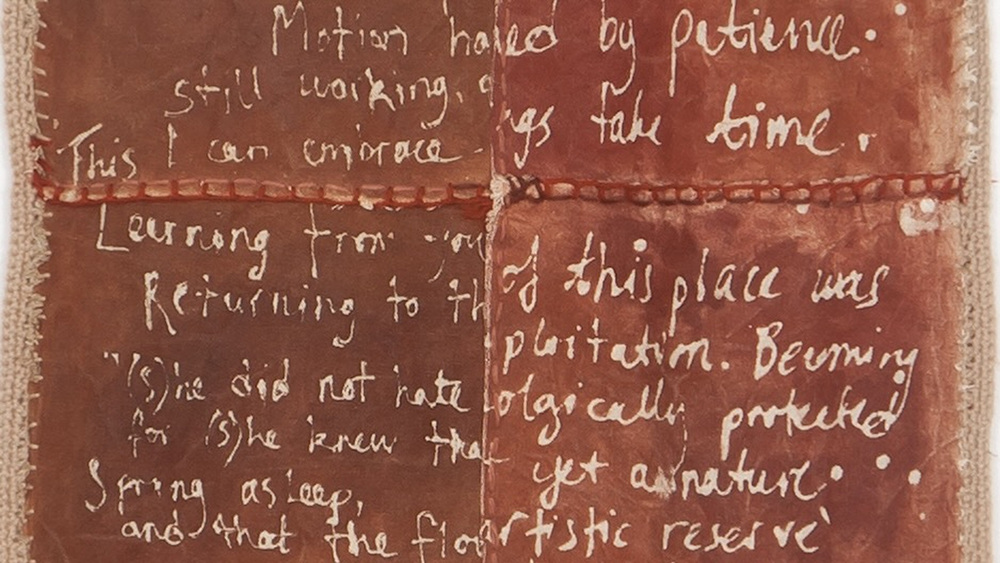 Motion
still working,
This I can embrace
by patience.
take time.
Learning from you
Returning to
"(s)he did not hate
for (s)he knew that
Spring asleep,
and that the
of this place was
ploitation. Becoming
protected
yet a nature
rtistic reserve'